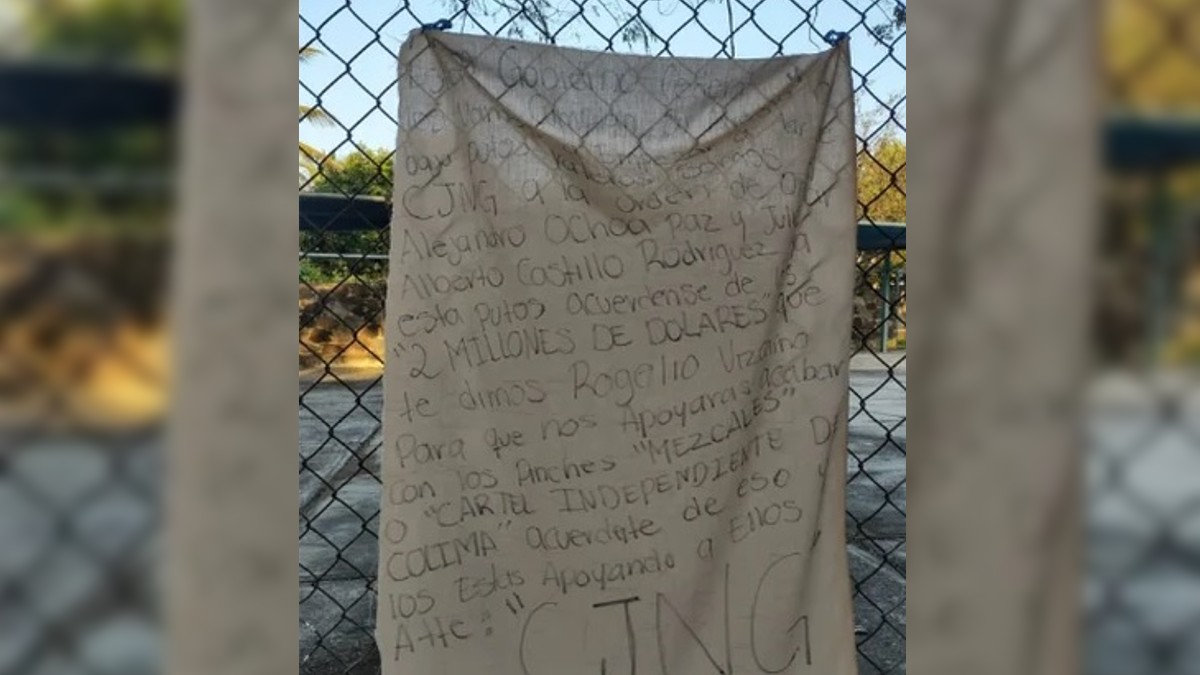 Gobierno
aqui putos
CJNG a la orden de
Alejandro Ochoa Paz y
Alberto Castillo Rodriguez
esta putos acuerdense de
"2 MILLONES DE DOLARES" que
te dimos Rogelio Vizcaino
Para que nos Apoyaras acabar
con los Pinches "MEZCALES"
O "CARTEL INDEPENDIENTE DE
COLIMA" acuerdate de eso y
los Estas Apoyando a Ellos
Atte: "CJNG